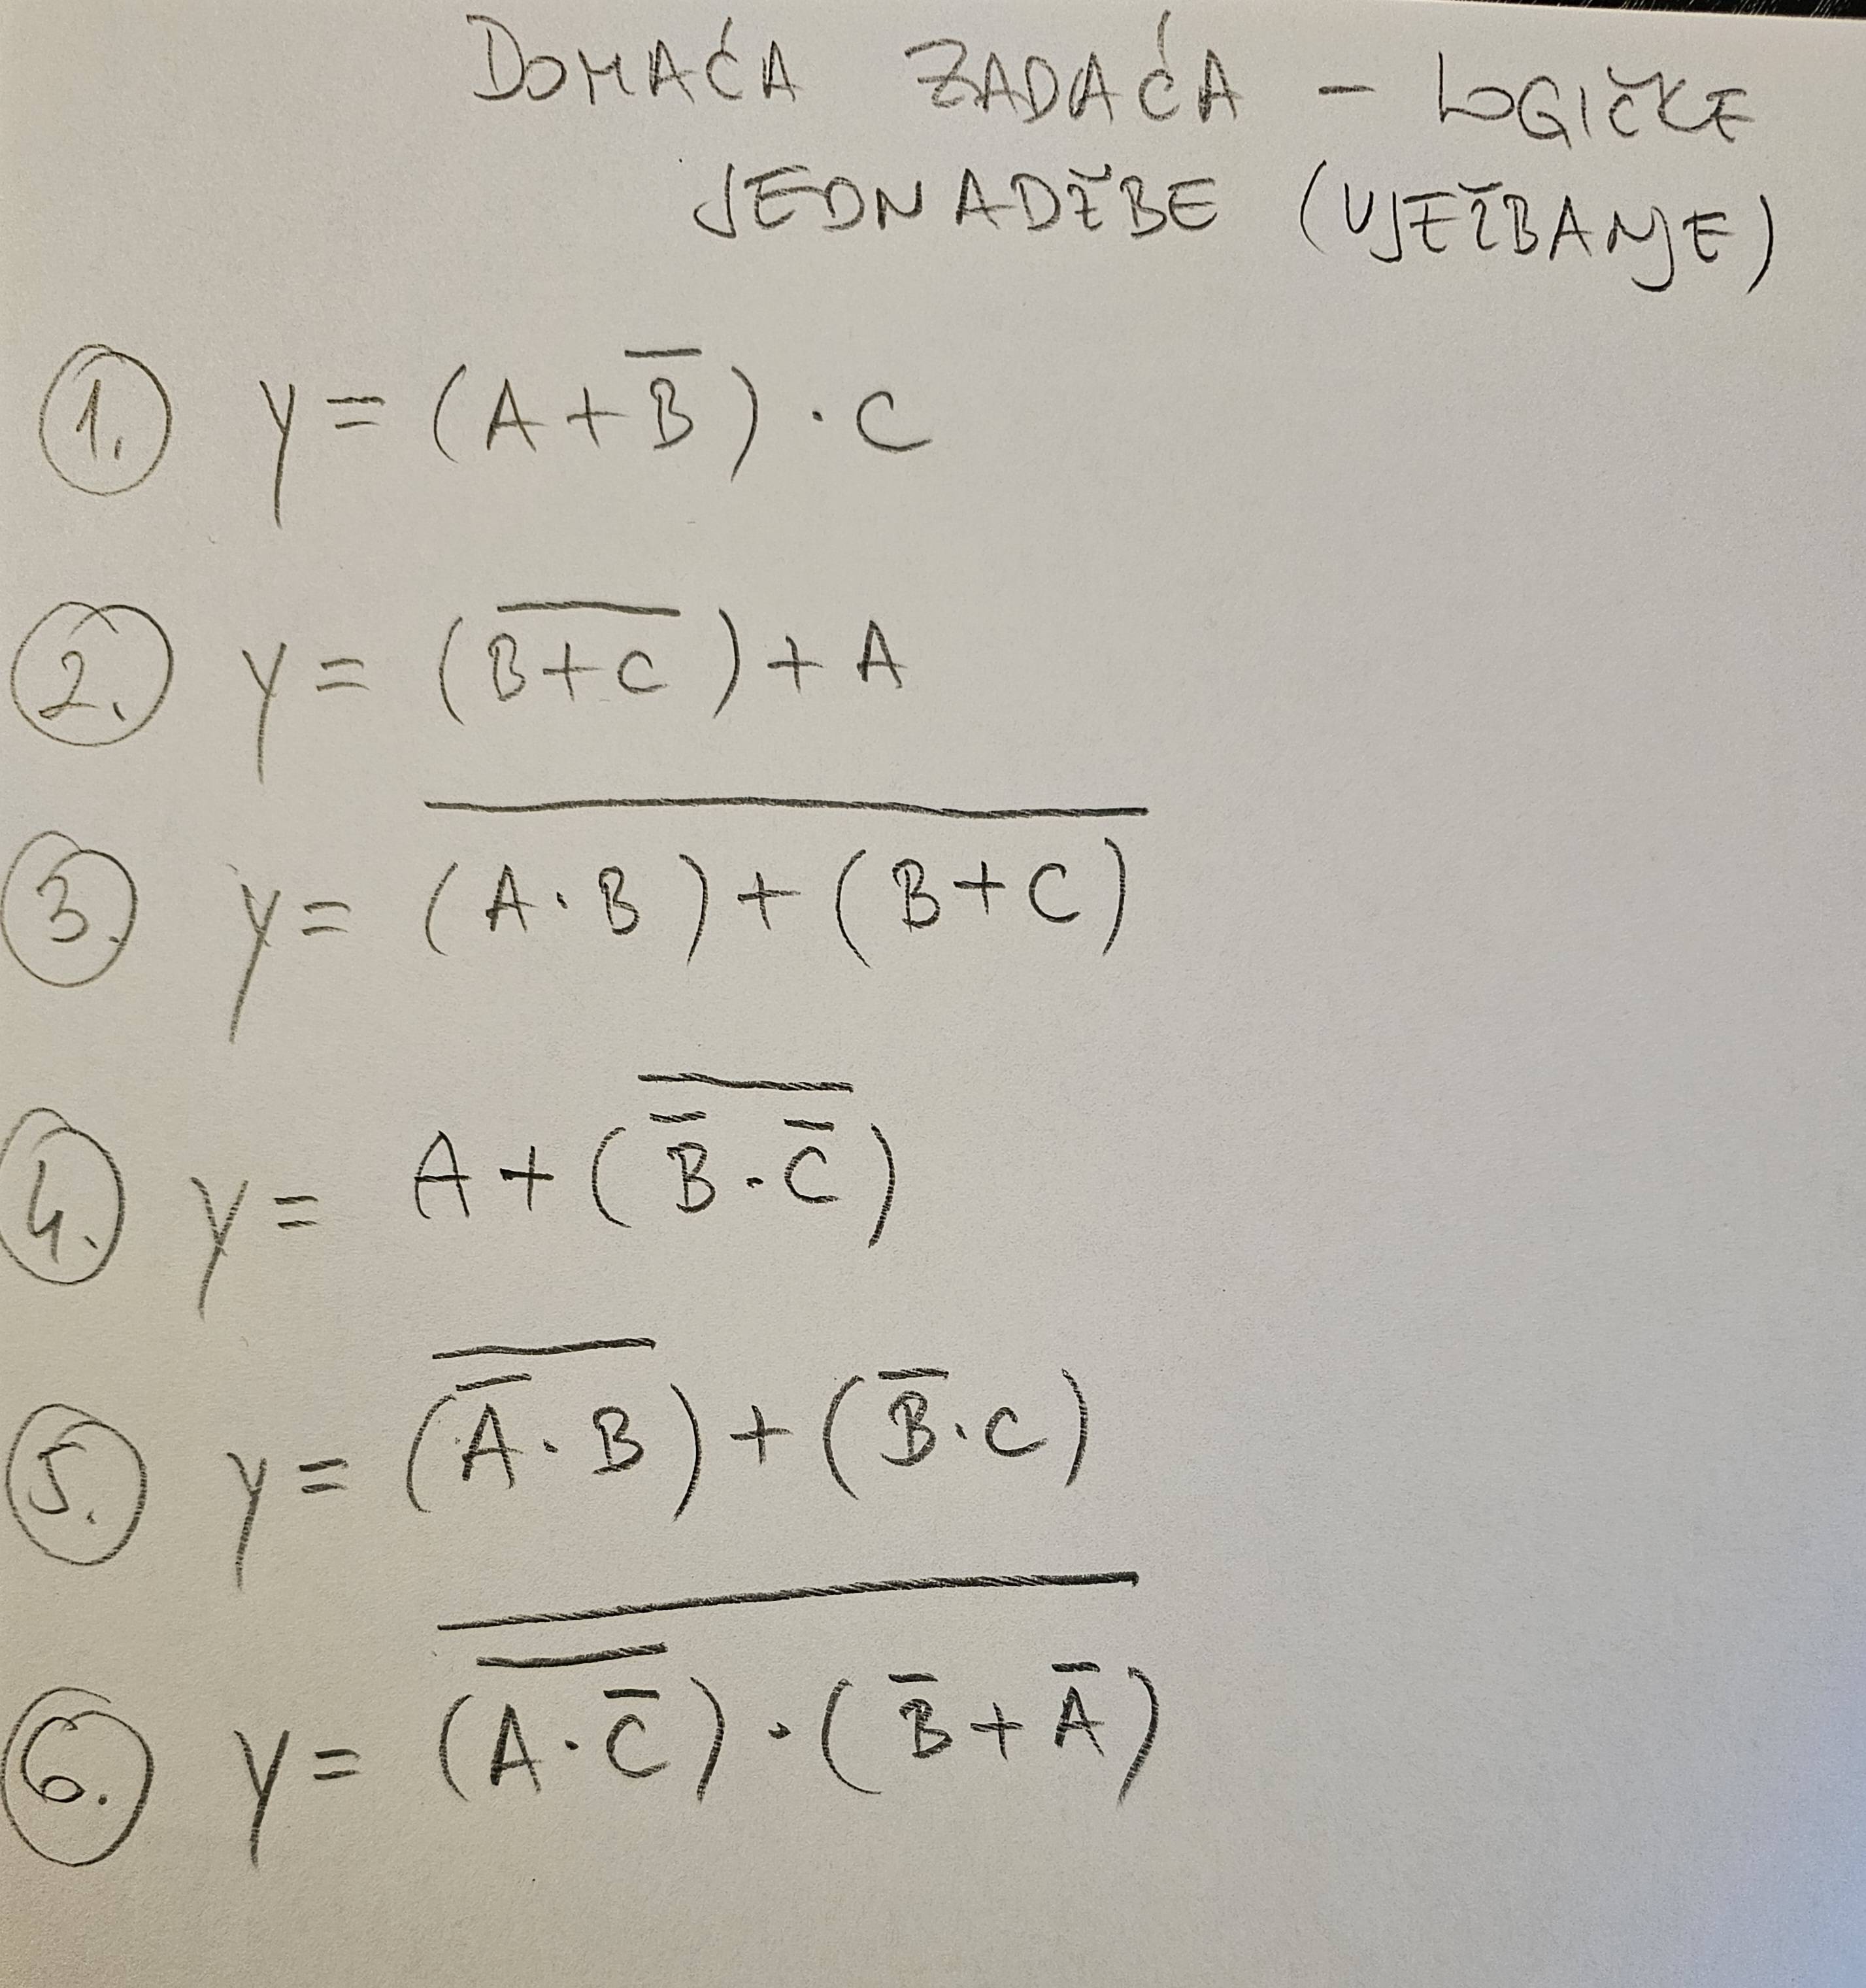 DOMAĆA ZADAĆA - LOGIČKE
JEDNADŽBE (VJEŽBANJE)
1. y = (A + B̅) · C
2. y = (B̅+̅C̅) + A
3. y = (̅A̅ ̅·̅ ̅B̅)̅ ̅+̅ ̅(̅B̅ ̅+̅ ̅C̅)̅
4. y = A + (B̅̅ ̅·̅ ̅C̅̅)
5. y = (̅A̅̅ ̅·̅ ̅B̅) + (B̅ · C)
6. y = (̅A̅̅ ̅̅·̅̅ ̅̅C̅̅̅)̅ ̅·̅ ̅(̅B̅̅ ̅+̅ ̅A̅̅)̅